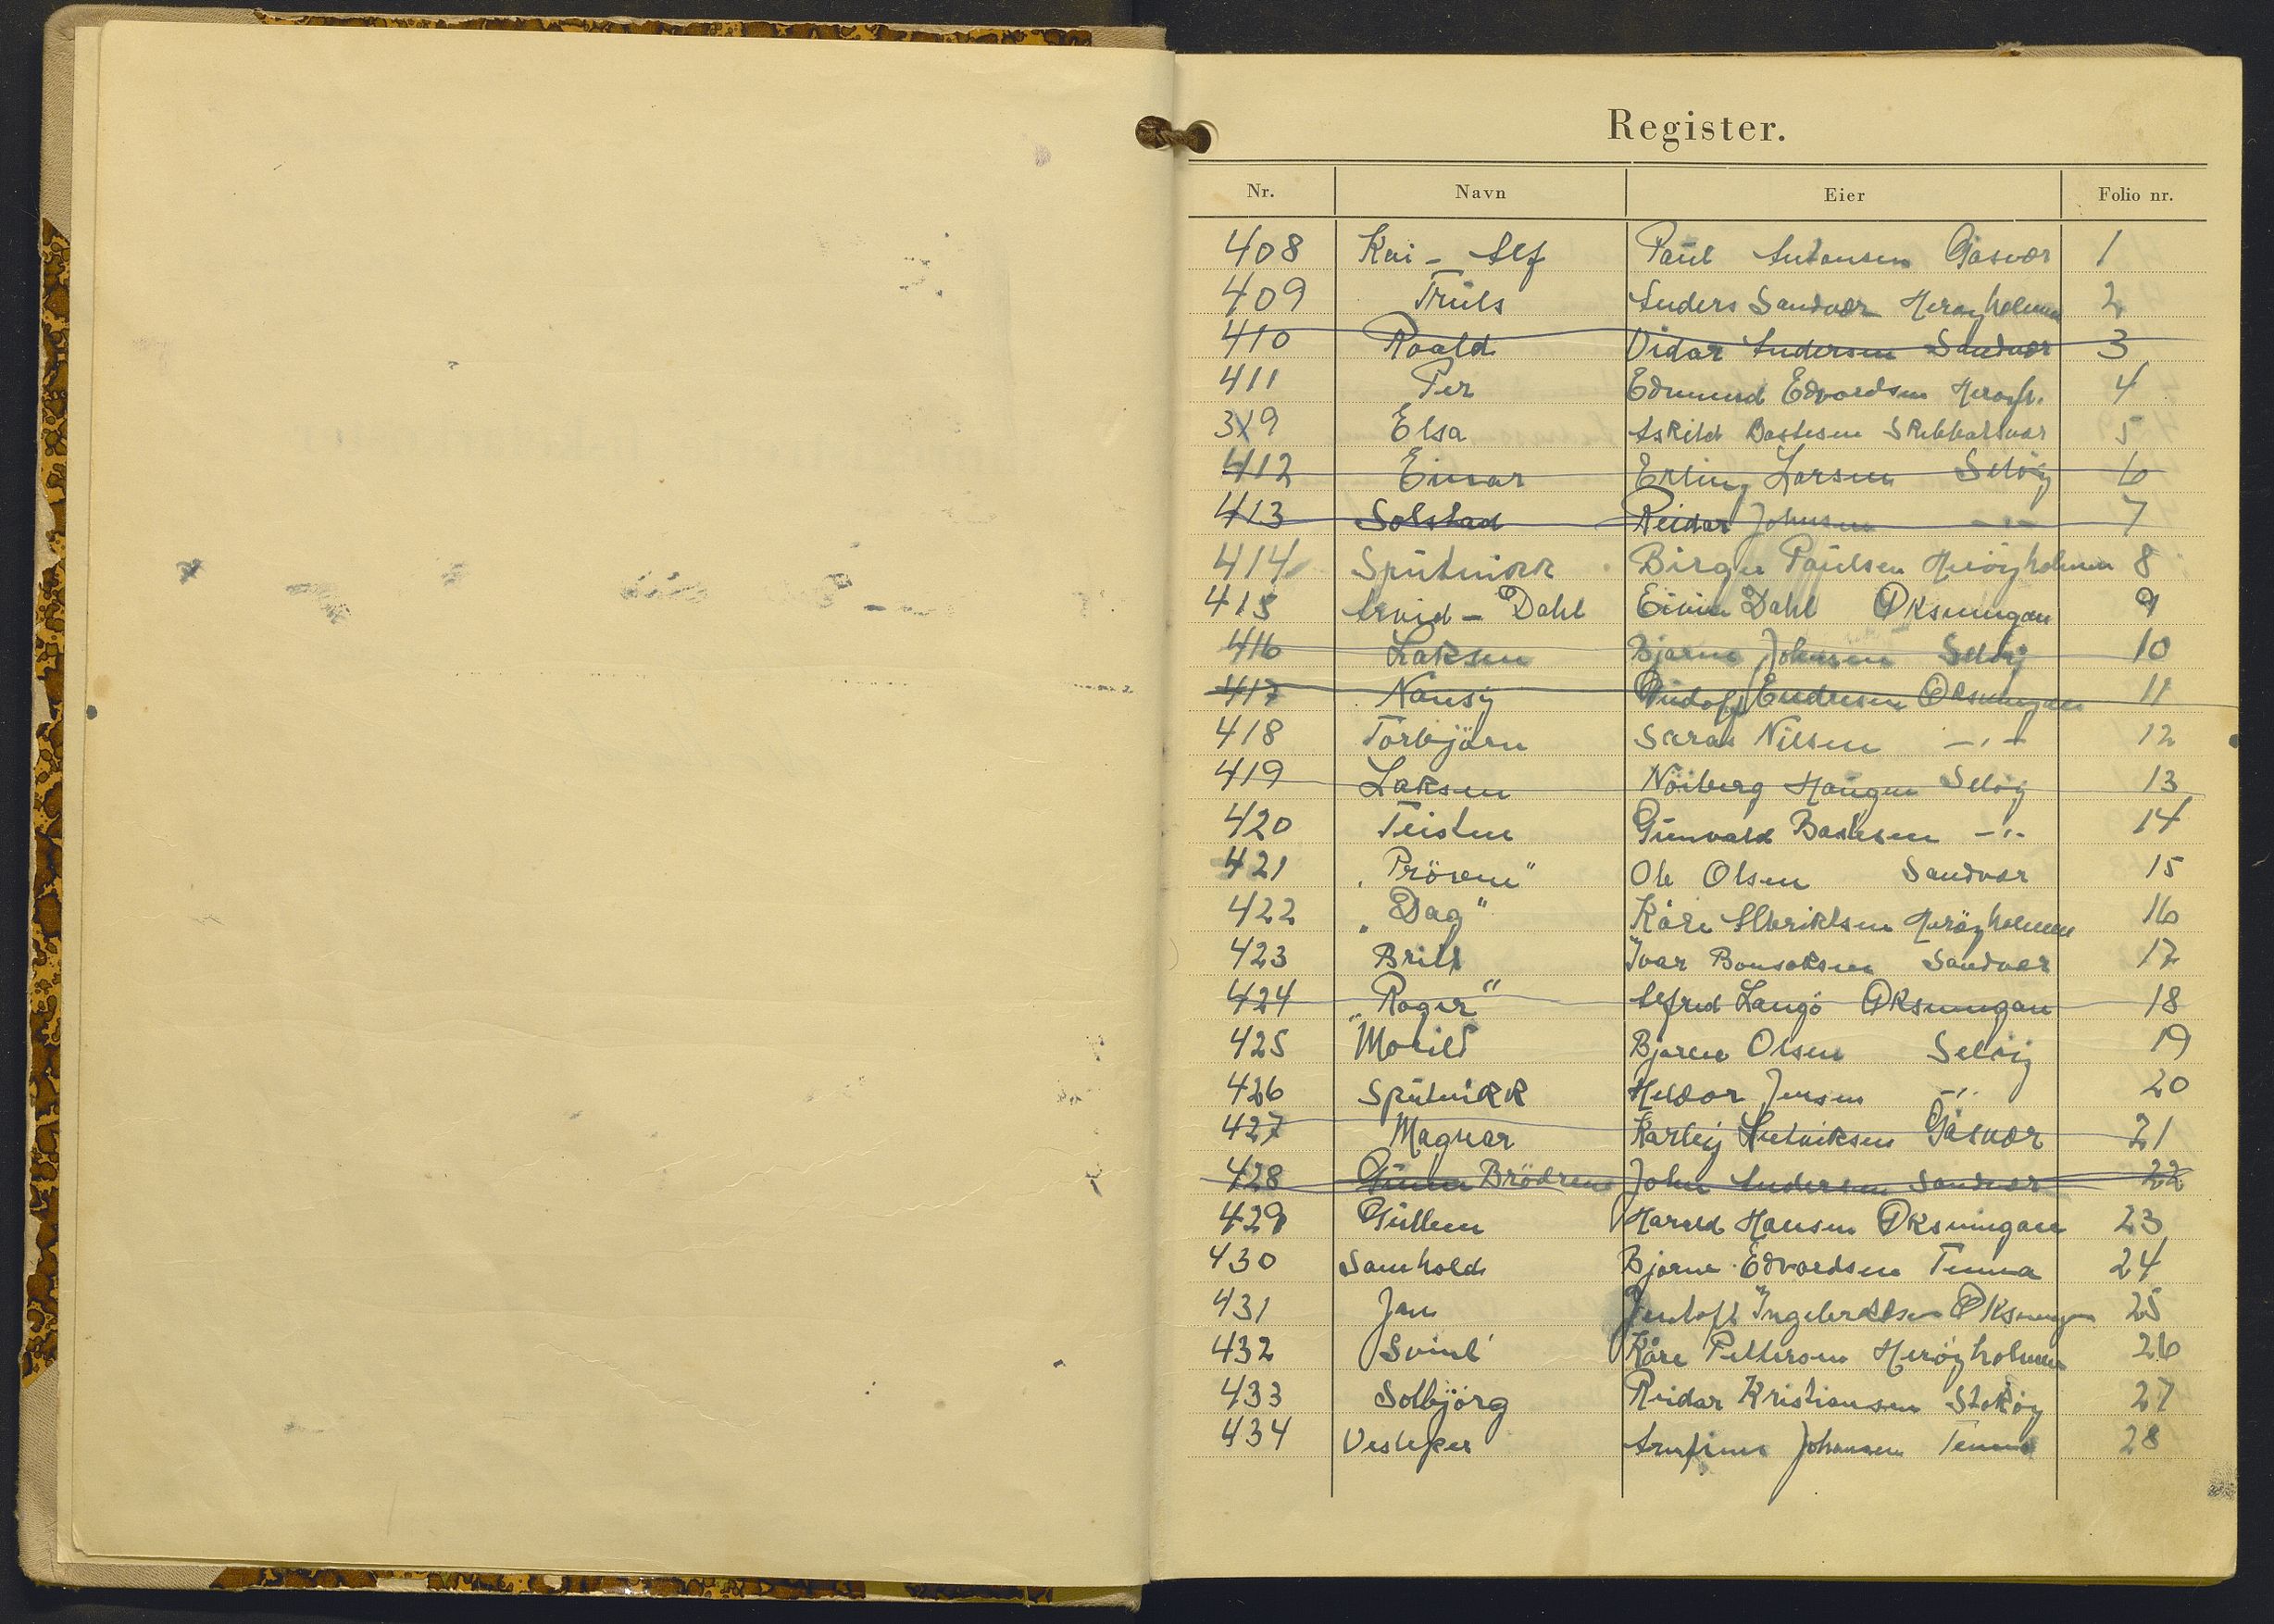 Register.
Nr. Navn Eier Folio nr.
408 Kai - Alf Paul Antonsen Gåsvær 1
409 Truls Anders Sandvær Herøyholmen 2
410 Roald Vidar Andersen Sandvær 3
411 Per Edmund Edvardsen Herøyh. 4
319 Elsa Askild Bastesen 5
412 Einar Erling Larsen Seløy 6
413 Solstad Reidar Johnsen -"- 7
414 Sputnikk Birger Paulsen Herøyholmen 8
415 Arvid - Dahl Eivin Dahl Øksningan 9
416 Laksen Bjarne Johnsen Seløy 10
417 Nansy Endresen Øksningan 11
418 Torbjörn Nilsen -"- 12
419 Laksen Haugen Seløy 13
420 Teisten Gunvald Bastesen -"- 14
421 „Pröven" Ole Olsen Sandvær 15
422 „Dag" Kåre Albriktsen Heröyholmen 16
423 Britt Ivar Bonsaksen Sandvær 17
424 „Roger" Alfred Langö Øksningan 18
425 Morild Bjarne Olsen Seløy 19
426 Sputnikk Heldor Jensen -"- 20
427 Magnar Karley Gåsvær 21
428 Brödrene John Andersen Sandvær 22
429 Gullen Harald Hansen Øksningan 23
430 Samhold Bjarne Edvardsen Tenna 24
431 Jan Jentoft Ingebrktsen 25
432 Svint Kåre Pettersen Herøyholmen 26
433 Solbjörg Reidar Kristiansen Stokøy 27
434 Vesleper Arnfinn Johansen Tenna 28